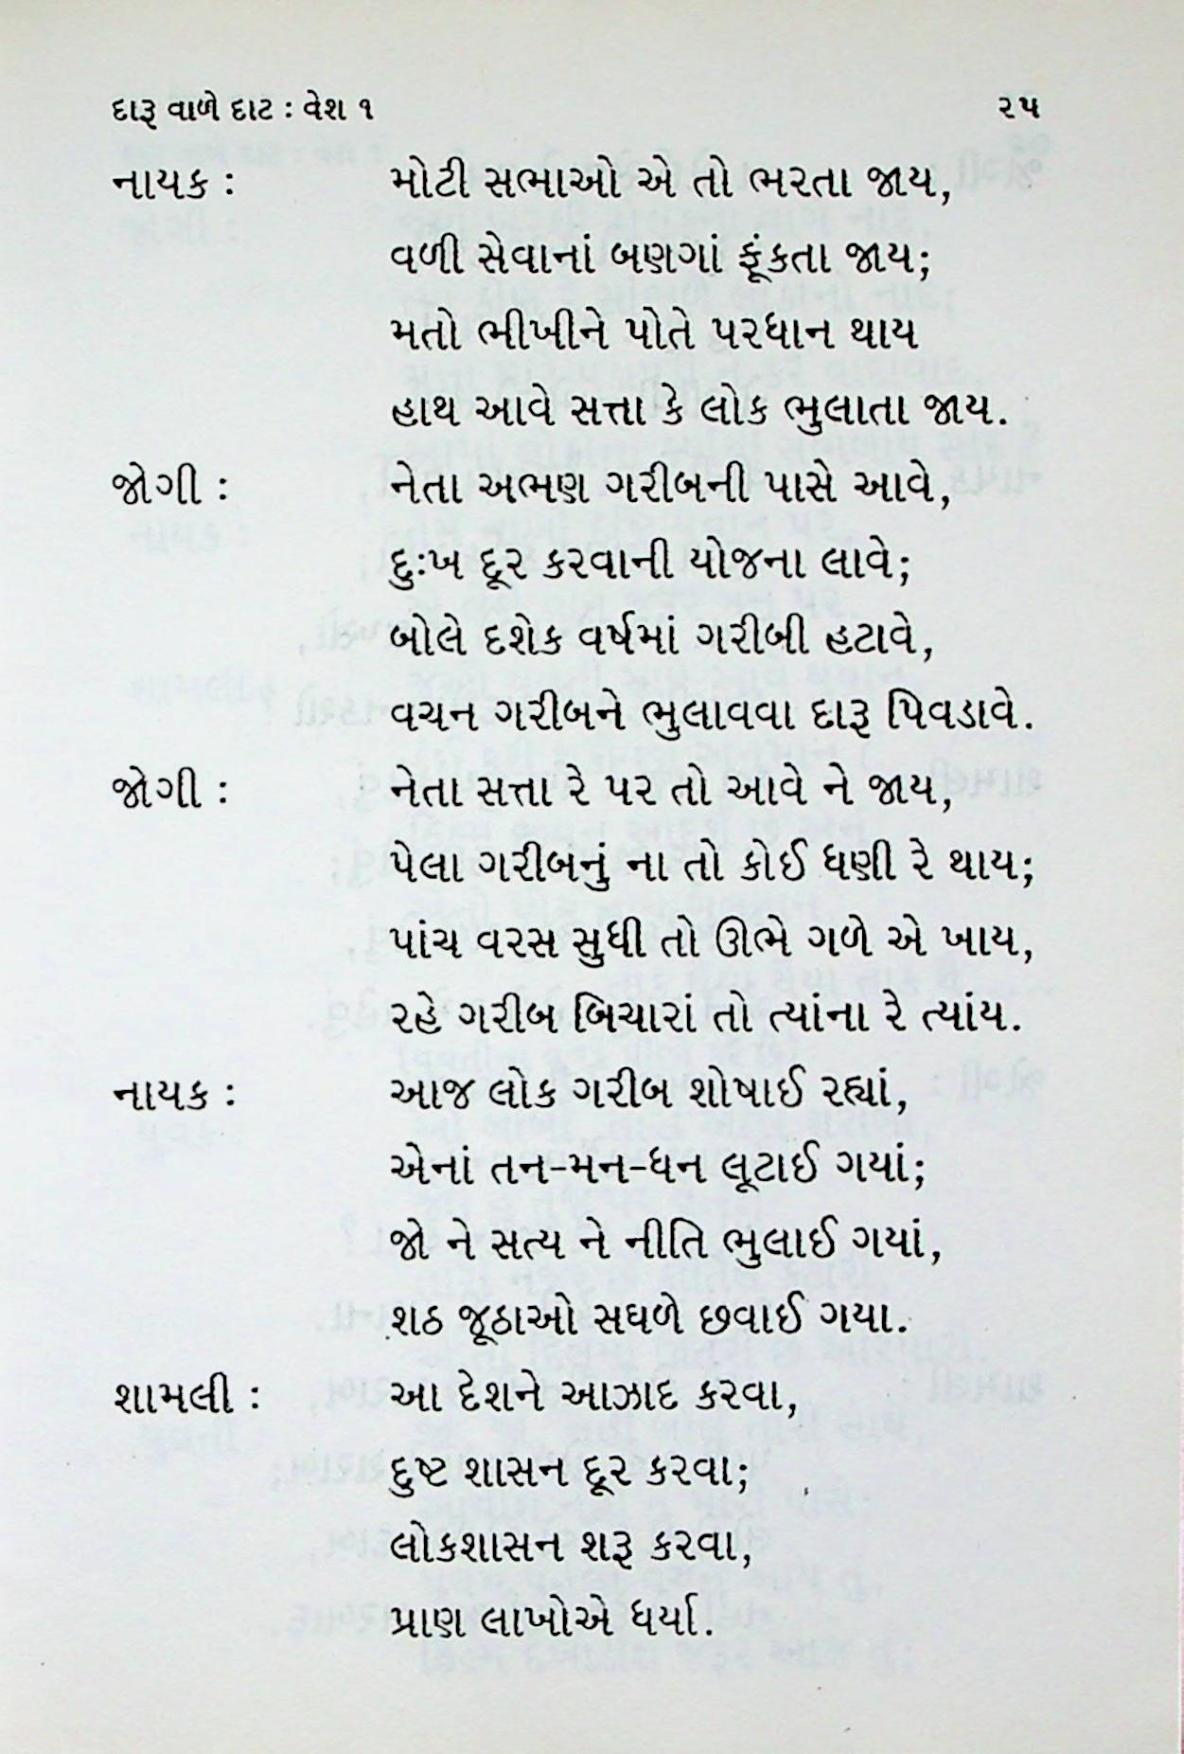 દારૂ વાળે દાટ : વેશ ૧ ૨૫
નાયક : મોટી સભાઓ એ તો ભરતા જાય,
વળી સેવાનાં બણગાં ફૂંકતા જાય;
મતો ભીખીને પોતે પરધાન થાય
હાથ આવે સત્તા કે લોક ભુલાતા જાય.
જોગી : નેતા અભણ ગરીબની પાસે આવે,
દુઃખ દૂર કરવાની યોજના લાવે;
બોલે દશેક વર્ષમાં ગરીબી હટાવે,
વચન ગરીબને ભુલાવવા દારૂ પિવડાવે.
જોગી : નેતા સત્તા રે પર તો આવે ને જાય,
પેલા ગરીબનું ના તો કોઈ ધણી રે થાય;
પાંચ વરસ સુધી તો ઊભે ગળે એ ખાય,
રહે ગરીબ બિચારાં તો ત્યાંના રે ત્યાંય.
નાયક : આજ લોક ગરીબ શોષાઈ રહ્યાં,
એનાં તન-મન-ધન લૂટાઈ ગયાં;
જો ને સત્ય ને નીતિ ભુલાઈ ગયાં,
શઠ જૂઠાઓ સઘળે છવાઈ ગયા.
શામલી : આ દેશને આઝાદ કરવા,
દુષ્ટ શાસન દૂર કરવા;
લોકશાસન શરૂ કરવા,
પ્રાણ લાખોએ ધર્યા.